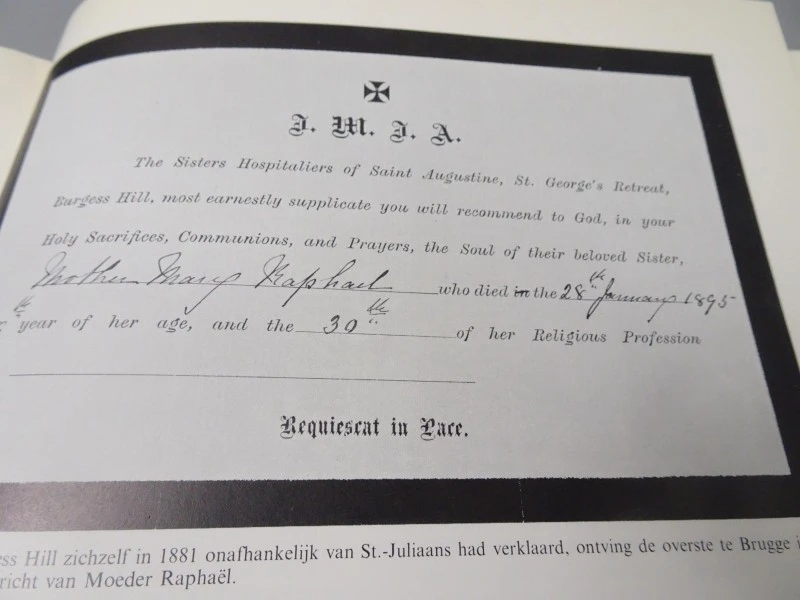 J. M. J. A.
The Sisters Hospitaliers of Saint Augustine, St. George's Retreat,
Burgess Hill, most earnestly supplicate you will recommend to God, in your
Holy Sacrifices, Communions, and Prayers, the Soul of their beloved Sister,
Mother Mary Raphael who died in the 28th January 1895
th year of her age, and the 30th of her Religious Profession
Requiescat in Pace.
ess Hill zichzelf in 1881 onafhankelijk van St.-Juliaans had verklaard, ontving de overste te Brugge
richt van Moeder Raphaël.